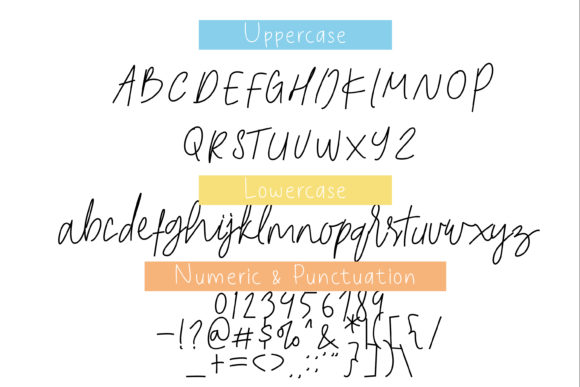 Uppercase
ABCDEFGHIJKLMNOP
QRSTUVWXYZ
Lowercase
abcdefghijklmnopqrstuvwxyz
Numeric & Punctuation
0123456789
-!?@#$%^&*|([{/
_+=<>.,:;'"}])\